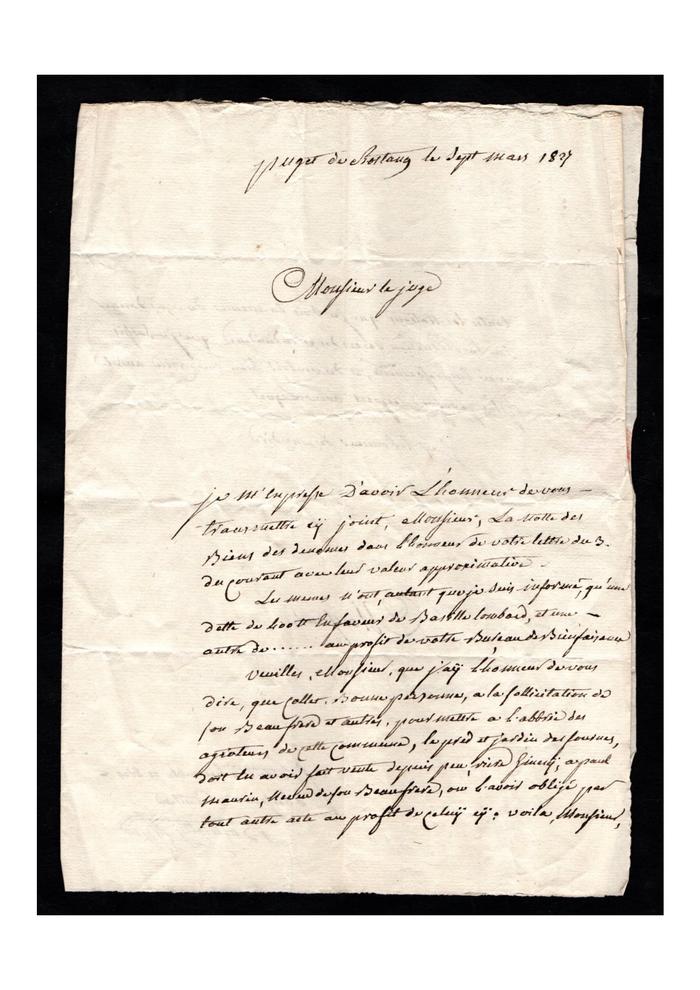 puget de Rostang le sept mars 1827
Monsieur le juge
je m'empresse D'avoir L'honneur de vous
transmettre cÿ joint, Monsieur, La notte des
Biens des denomés dans l'honneur de votre lettre du 3.
du courant avec leur valeur approximative.
Les memes n'ont, autant que je suis informé, qu'une
dette de 400 Enfaveur de Basille lombard, et une
autre de ...... au profit de votre Bureau de Bienfaisance
veuilles, Monsieur, que j'aÿ l'honneur de vous
dire, que Collet, Bonne personne, a la sollicitation de
son Beaufrere et autres, pour mettre a l'abbrie des
agioteurs de cette Commune, le pred et jardin des fournes,
doit en avoir fait vente depuis peu a paul
maurin, Neveu de son Beaufrere, ou l'avoir obligé par
tout autre acte au profit de Celuÿ cÿ: voila, Monsieur,